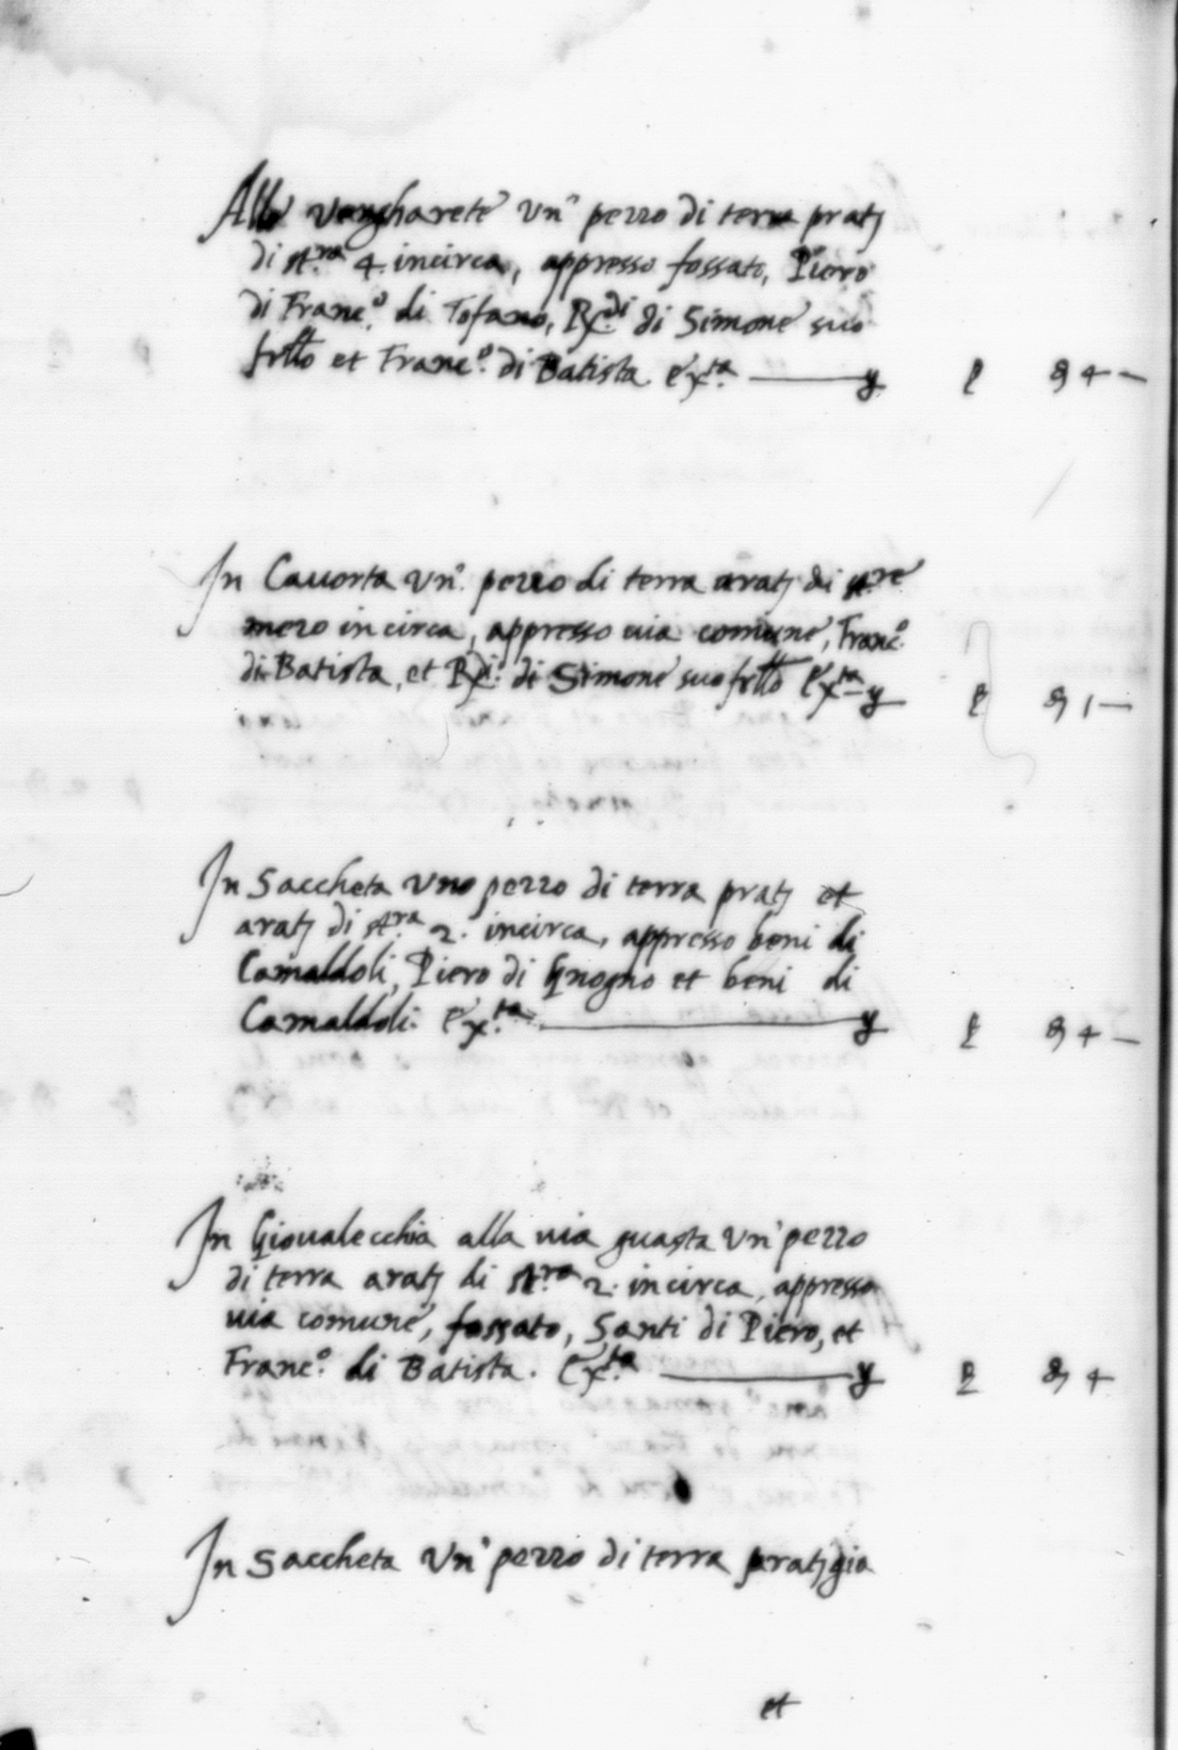 Alle vergharete un° pezzo di terra prati
di st.ra 4. incirca, appresso fossato, Piero
di Franc.o di Tofano, Rx.di di Simone suo
frllo et Franc.o di Batista. Ex.ta
4 —
In Cauorta un° pezzo di terra arati di st.re
mezo incirca, appresso uia comune, Franc.o
di Batista, et Rx.di di Simone suo frllo Ex.ta
1 —
In Saccheta uno pezzo di terra prati et
arati di st.ra 2. incirca, appresso beni di
Camaldoli, Piero di Gnogno et beni di
Camaldoli. Ex.ta
4 —
In Gioualecchia alla uia guasta un° pezzo
di terra arati di st.ra 2. incirca, appresso
uia comune, fossato, Santi di Piero, et
Franc.o di Batista. Ex.ta
4
In Saccheta un° pezzo di terra prati gia
et